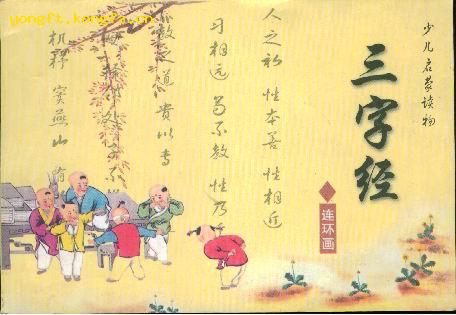 少儿启蒙读物
三字经
连环画
人之初 性本善 性相近
习相远 苟不教 性乃
教之道 贵以专
择邻处 子不
机杼 窦燕山 有